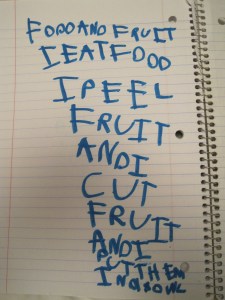 FOOD AND FRUIT
I EAT FOOD
I PEEL
FRUIT
AND I
CUT
FRUIT
AND I
PUT THEM
IN A BOWL